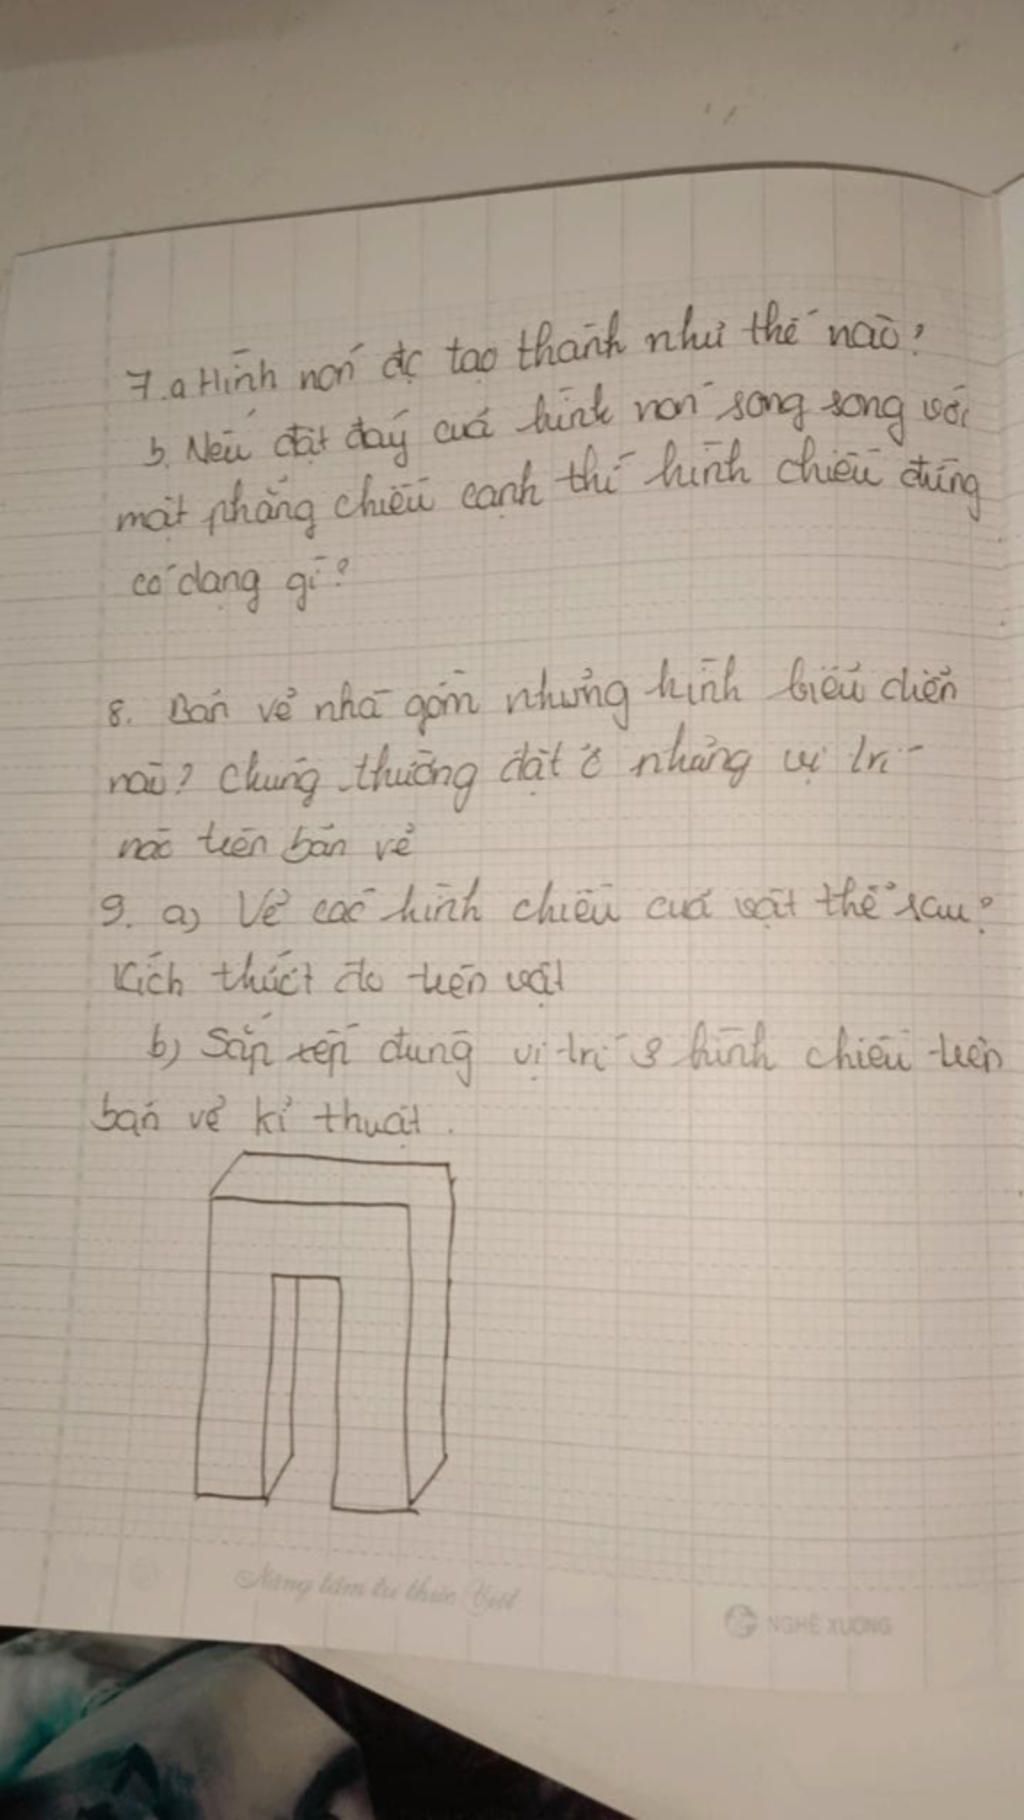 7.a Hình nón đc tạo thành như thế nào?
b. Nếu đặt đáy của hình nón song song với
mặt phẳng chiếu cạnh thì hình chiếu đứng
có dạng gì?
8. Bản vẽ nhà gồm những hình biểu diễn
nào? Chúng thường đặt ở những vị trí
nào trên bản vẽ
9. a) Vẽ các hình chiếu của vật thể sau?
Kích thước đo trên vật
b) Sắp xếp đúng vị trí 3 hình chiếu trên
bản vẽ kĩ thuật.
Nâng tầm tri thức Việt
NGHĨ XƯƠNG